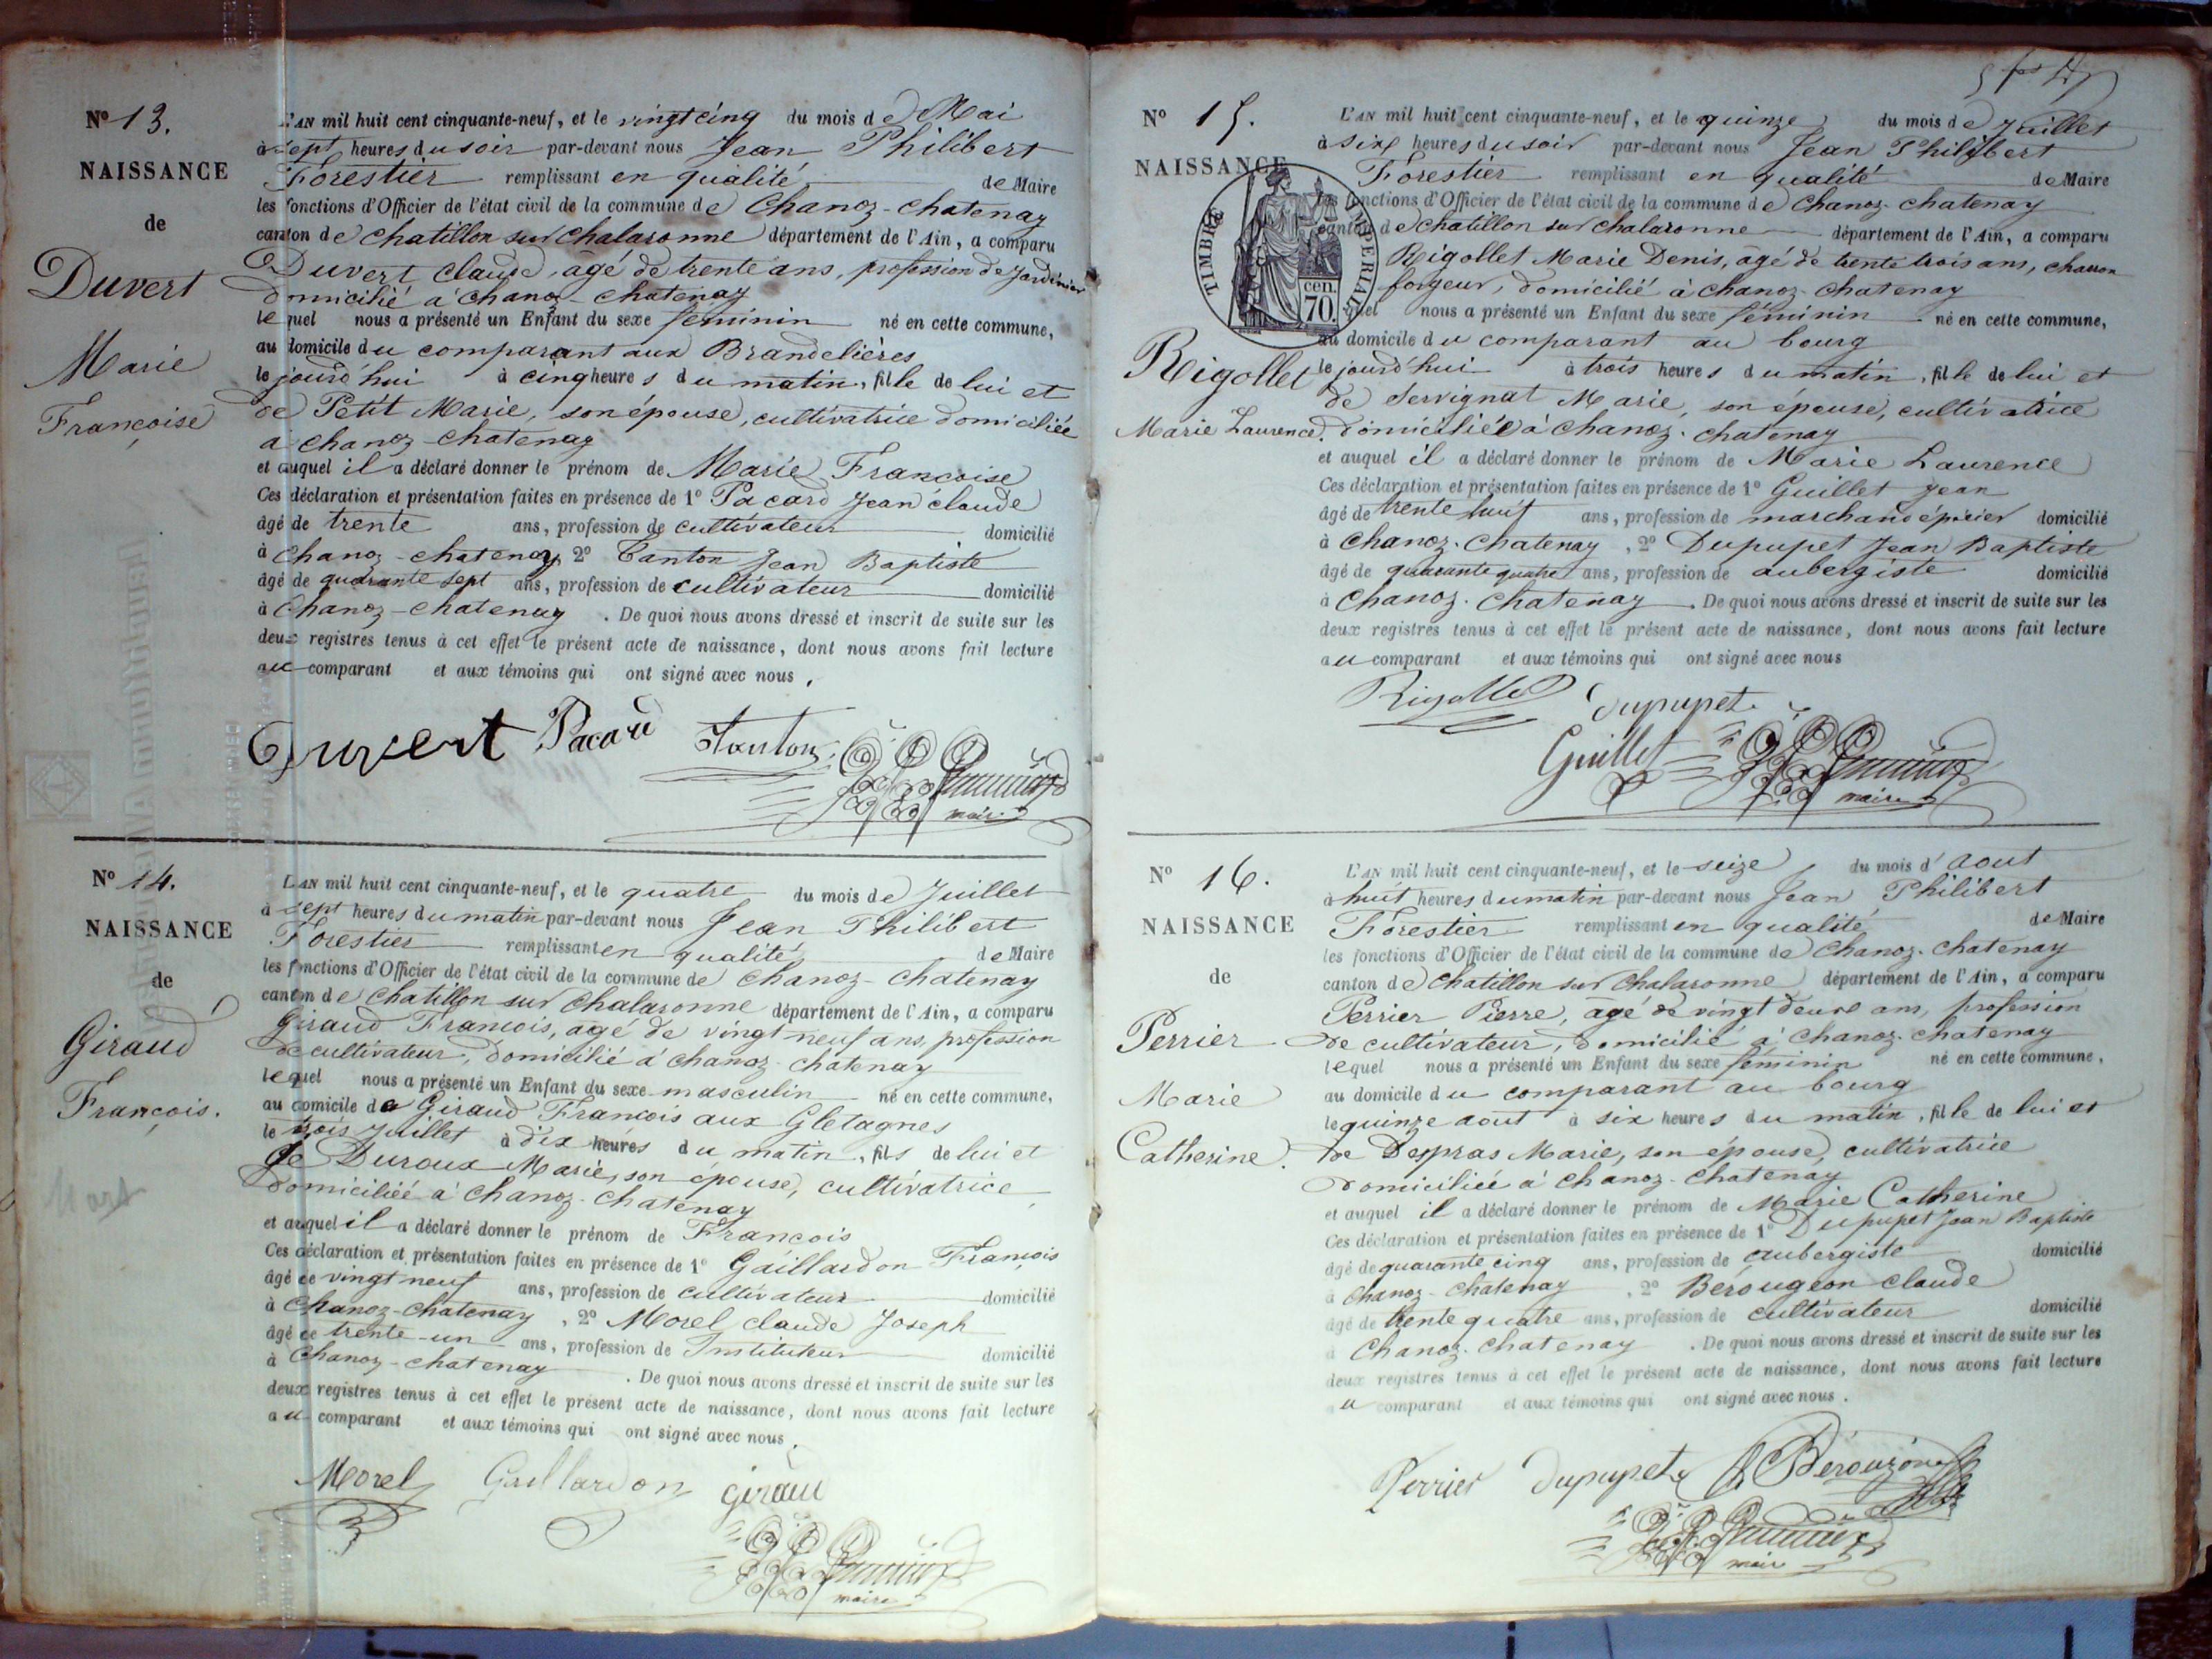 N° 13.
NAISSANCE
de
Duvert
Marie
Françoise
L'AN mil huit cent cinquante-neuf, et le vingt cinq du mois de Mai
à sept heures du soir par-devant nous Jean Philibert
Forestier remplissant en qualité de Maire
les fonctions d'Officier de l'état civil de la commune de Chanoz-Chatenay
canton de Chatillon sur Chalaronne département de l'Ain, a comparu
Duvert Claude, agé de trente ans, profession de jardinier
domicilié à Chanoz-Chatenay
lequel nous a présenté un Enfant du sexe féminin né en cette commune,
au domicile du comparant aux Brandelières
le jourd'hui à cinq heures du matin, fille de lui et
de Petit Marie, son épouse, cultivatrice domiciliée
à Chanoz-Chatenay
et auquel il a déclaré donner le prénom de Marie Françoise
Ces déclaration et présentation faites en présence de 1° Pacard Jean Claude
âgé de trente ans, profession de cultivateur domicilié
à Chanoz-Chatenay, 2° Tanton Jean Baptiste
âgé de quarante sept ans, profession de cultivateur domicilié
à Chanoz-Chatenay. De quoi nous avons dressé et inscrit de suite sur les
deux registres tenus à cet effet le présent acte de naissance, dont nous avons fait lecture
au comparant et aux témoins qui ont signé avec nous.
Duvert Pacard Tanton
maire
N° 14.
NAISSANCE
de
Giraud
François.
L'AN mil huit cent cinquante-neuf, et le quatre du mois de Juillet
à sept heures du matin par-devant nous Jean Philibert
Forestier remplissant en qualité de Maire
les fonctions d'Officier de l'état civil de la commune de Chanoz-Chatenay
canton de Chatillon sur Chalaronne département de l'Ain, a comparu
Giraud François, agé de vingt neuf ans, profession
de cultivateur, domicilié à Chanoz-Chatenay
lequel nous a présenté un Enfant du sexe masculin né en cette commune,
au domicile de Giraud François aux Gletagnes
le trois Juillet à dix heures du matin, fils de lui et
de Duroux Marie, son épouse, cultivatrice
domiciliée à Chanoz-Chatenay
et auquel il a déclaré donner le prénom de François
Ces déclaration et présentation faites en présence de 1° Gaillardon François
âgé de vingt neuf ans, profession de cultivateur domicilié
à Chanoz-Chatenay, 2° Morel Claude Joseph
âgé de trente-un ans, profession de Instituteur domicilié
à Chanoz-Chatenay. De quoi nous avons dressé et inscrit de suite sur les
deux registres tenus à cet effet le présent acte de naissance, dont nous avons fait lecture
au comparant et aux témoins qui ont signé avec nous.
Morel Gaillardon giraud
maire
N° 15.
NAISSANCE
TIMBRE IMPERIAL
cen.
70.
Rigollet
Marie Laurence.
L'AN mil huit cent cinquante-neuf, et le quinze du mois de Juillet
à six heures du soir par-devant nous Jean Philibert
Forestier remplissant en qualité de Maire
les fonctions d'Officier de l'état civil de la commune de Chanoz-Chatenay
canton de Chatillon sur Chalaronne département de l'Ain, a comparu
Rigollet Marie Denis, âgé de trente trois ans, charron
forgeur, domicilié à Chanoz-Chatenay
lequel nous a présenté un Enfant du sexe féminin né en cette commune,
au domicile du comparant au bourg
le jourd'hui à trois heures du matin, fille de lui et
de Servignat Marie, son épouse, cultivatrice
domiciliée à Chanoz-Chatenay
et auquel il a déclaré donner le prénom de Marie Laurence
Ces déclaration et présentation faites en présence de 1° Guillet Jean
âgé de trente huit ans, profession de marchand épicier domicilié
à Chanoz-Chatenay, 2° Dupupet Jean Baptiste
âgé de quarante quatre ans, profession de aubergiste domicilié
à Chanoz-Chatenay. De quoi nous avons dressé et inscrit de suite sur les
deux registres tenus à cet effet le présent acte de naissance, dont nous avons fait lecture
au comparant et aux témoins qui ont signé avec nous
Rigollet Dupupet
Guillet
maire
N° 16.
NAISSANCE
de
Perrier
Marie
Catherine.
L'AN mil huit cent cinquante-neuf, et le seize du mois d'Aout
à huit heures du matin par-devant nous Jean Philibert
Forestier remplissant en qualité de Maire
les fonctions d'Officier de l'état civil de la commune de Chanoz-Chatenay
canton de Chatillon sur Chalaronne département de l'Ain, a comparu
Perrier Pierre, âgé de vingt deux ans, profession
de cultivateur, domicilié à Chanoz-Chatenay
lequel nous a présenté un Enfant du sexe féminin né en cette commune,
au domicile du comparant au bourg
le quinze aout à six heures du matin, fille de lui et
de Despras Marie, son épouse, cultivatrice
domiciliée à Chanoz-Chatenay
et auquel il a déclaré donner le prénom de Marie Catherine
Ces déclaration et présentation faites en présence de 1° Dupupet Jean Baptiste
âgé de quarante cinq ans, profession de aubergiste domicilié
à Chanoz-Chatenay, 2° Berougeon Claude
âgé de trente quatre ans, profession de cultivateur domicilié
à Chanoz-Chatenay. De quoi nous avons dressé et inscrit de suite sur les
deux registres tenus à cet effet le présent acte de naissance, dont nous avons fait lecture
au comparant et aux témoins qui ont signé avec nous.
Perrier Dupupet
maire